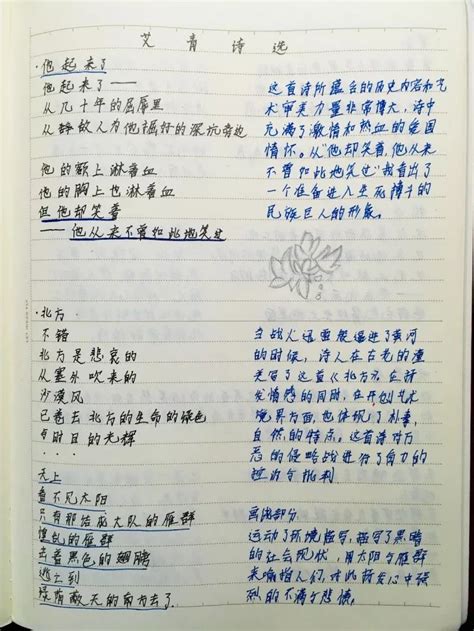 艾青诗选
·他起来了
他起来了——
从几十年的屈辱里
从敌人为他掘好的深坑旁边
他的额上淋着血
他的胸上也淋着血
但他却笑着
——他从来不曾如此地笑过
这首诗所蕴含的历史内容和艺
术审美力量非常博大,诗中
充满了激情和热血的爱国
情怀。从“他却笑着,他从来
不曾如此地笑过”我看出了
一个准备进入生死搏斗的
民族巨人的形象。
·北方
不错
北方是悲哀的
从塞外吹来的
沙漠风
已卷去北方的生命的绿色
与时日的光辉
...
当战火逼近了黄河
的时候,诗人在古老的潼
关写了这首《北方》,在抒
发情感的同时,在开创艺术
境界方面,也体现了朴素,
自然的特点。这首诗对万
恶的侵略战进行了有力的
天上
看不见太阳
只有那结成大队的雁群
惶乱的雁群
击着黑色的翅膀
逃亡到
绿荫蔽天的南方去了。
画线部分
运动了环境描写,描写了黑暗
的社会现状,用太阳与雁群
来喻指人们,对此诗人心中强
烈的不满与悲愤。